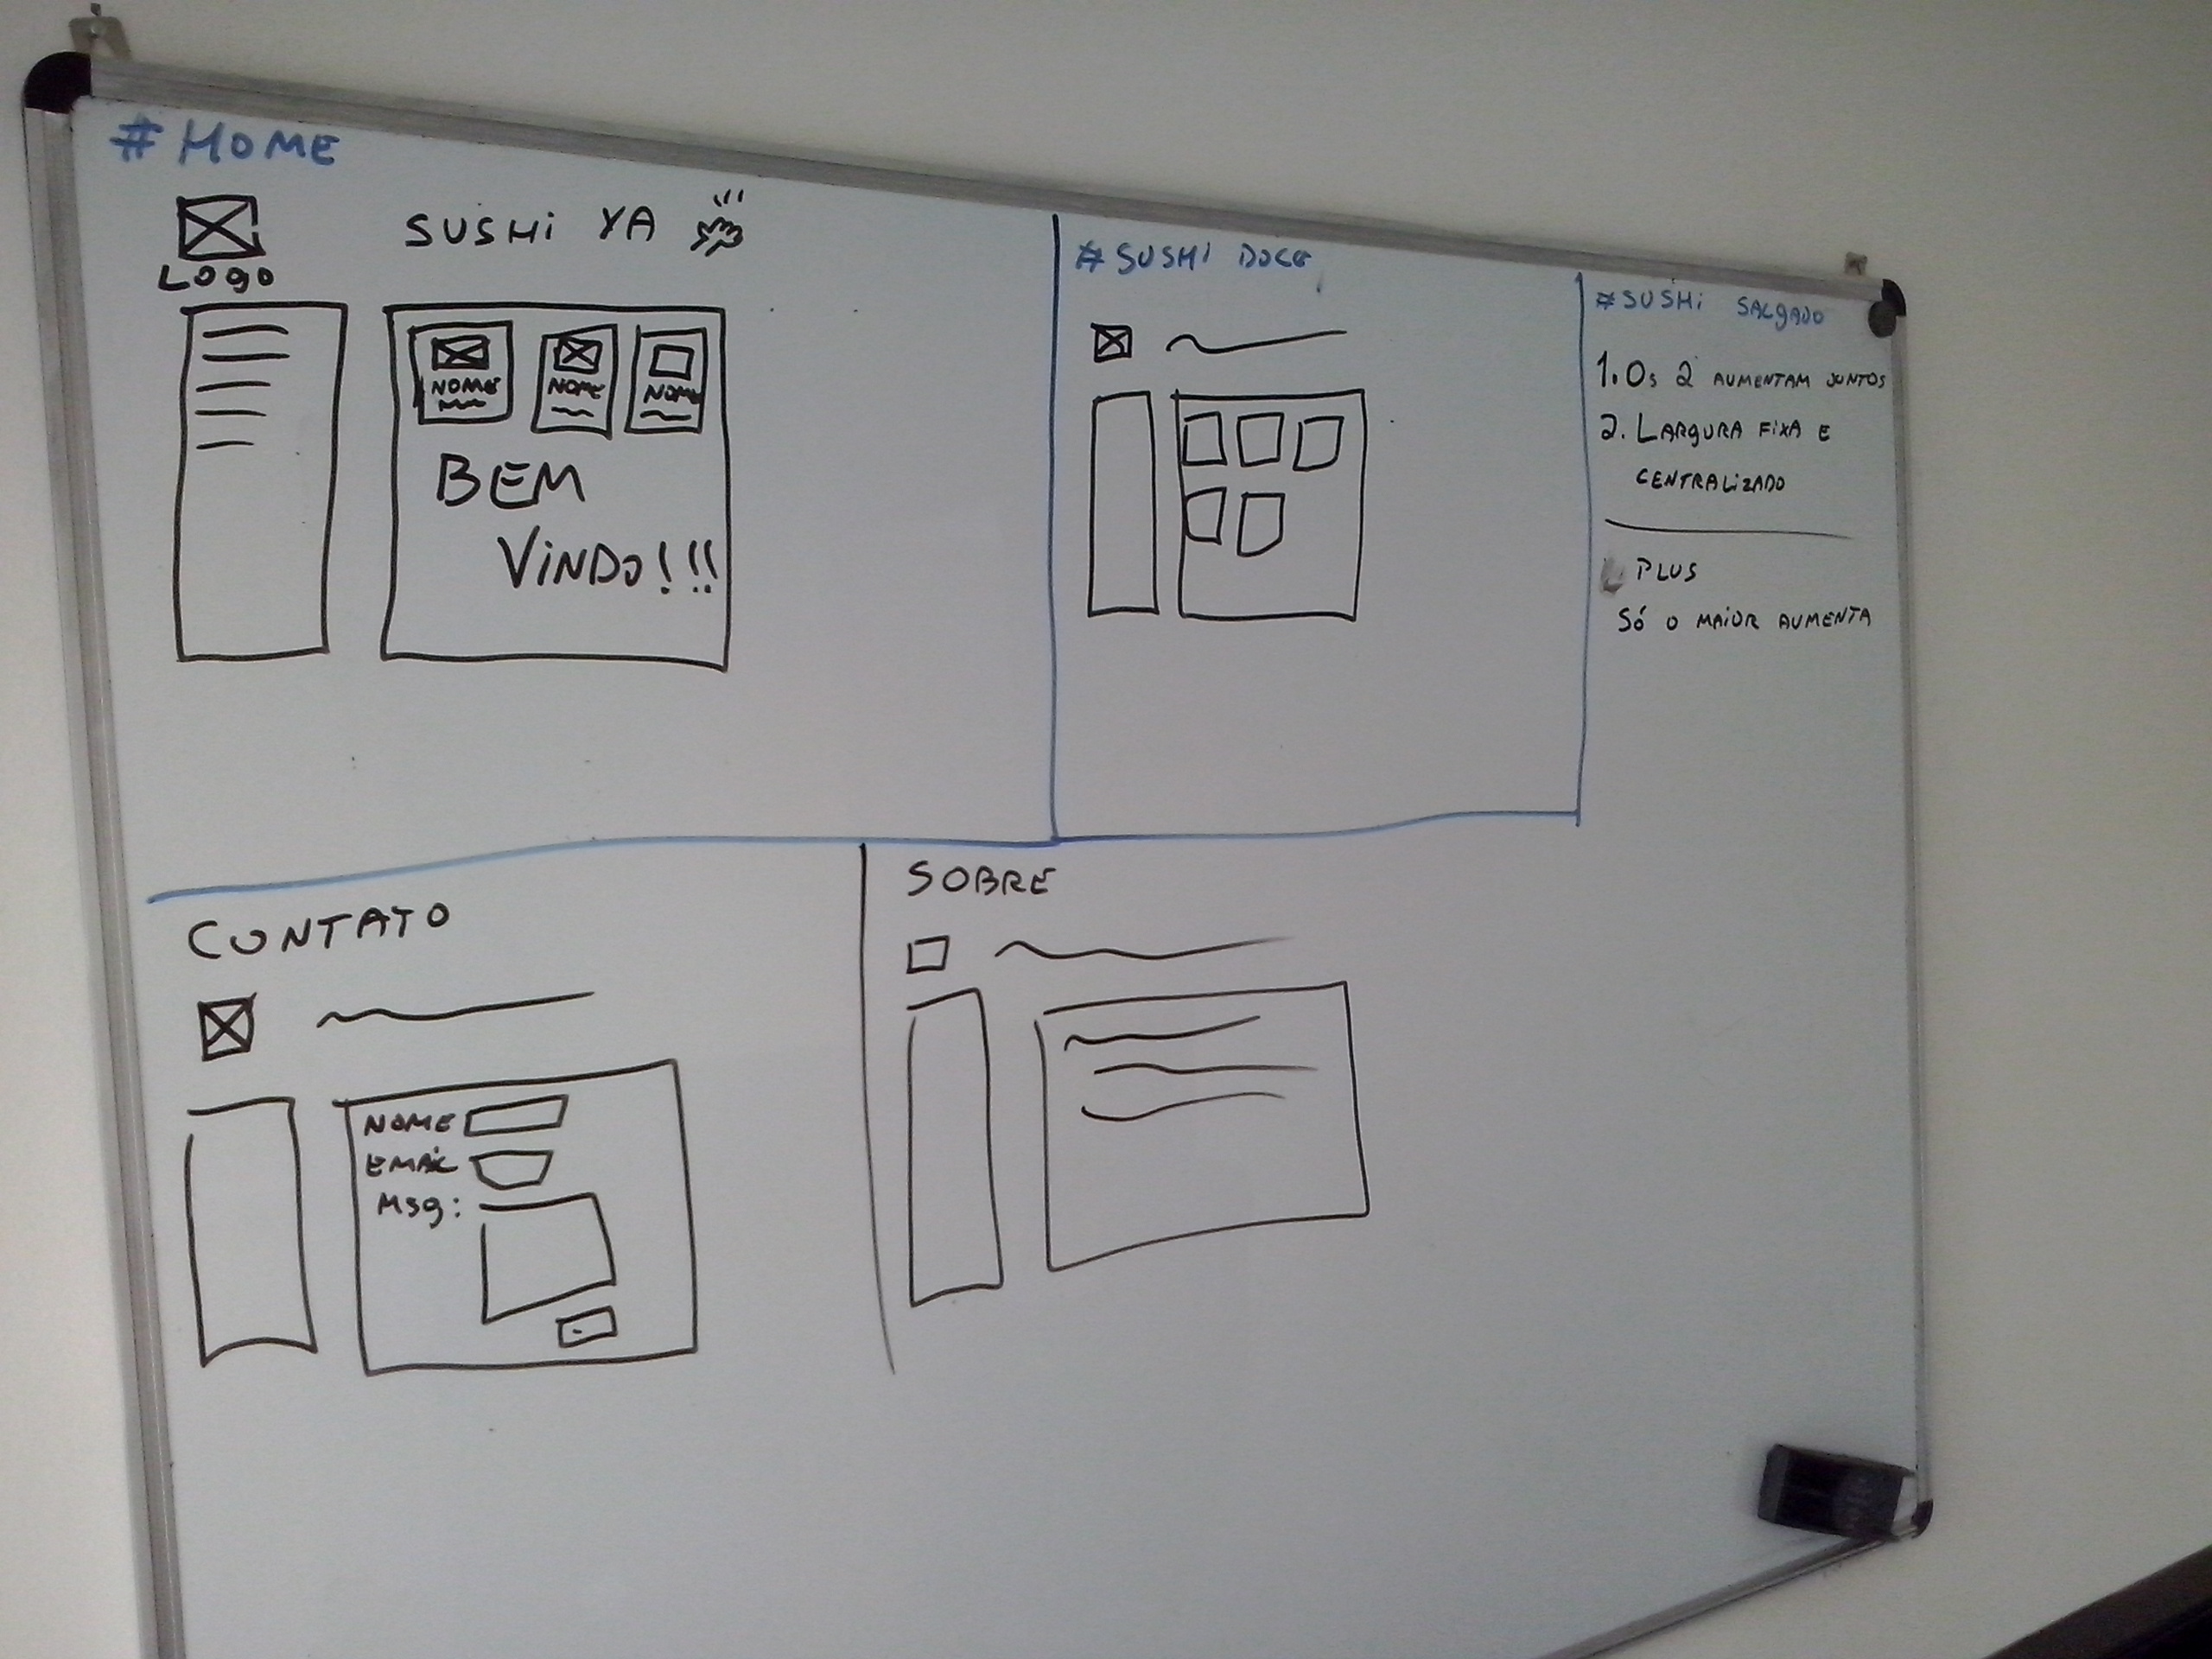 # HOME
SUSHi YA
Logo
NOME
NOME
NOME
BEM
ViNDO!!!
# SUSHI DOCE
# SUSHi SALgADO
1. Os 2 AUMENTAM JUNTOS
2. LARgURA FiXA E
CENTRALiZADO
PLUS
Só O MAiOR AUMENTA
CONTATO
NOME
EMAiL
Msg:
SOBRE